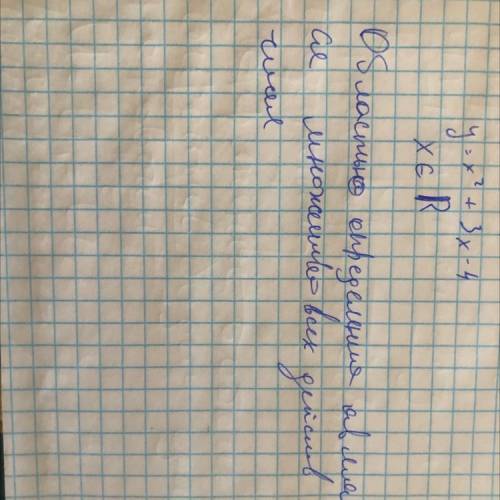 y = x² + 3x - 4
x ∈ R
Областью определения явля
ся множество всех действ
чисел